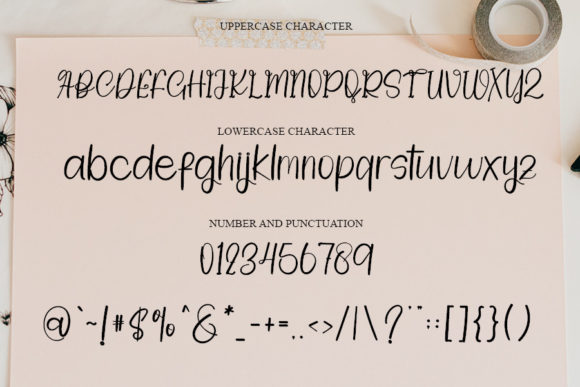 UPPERCASE CHARACTER
ABCDEFGHIJKLMNOPQRSTUVWXYZ
LOWERCASE CHARACTER
abcdefghijklmnopqrstuvwxyz
NUMBER AND PUNCTUATION
0123456789
@`~!#$%^&*_-+=,.<>/|\?'":;[]{}()